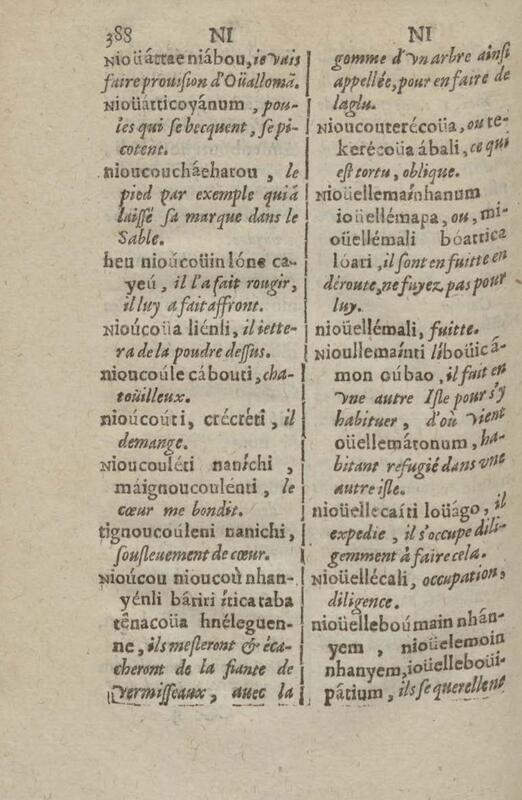 388 NI NI
Nioüáttae niábou, ie vais
faire prouision d'Oüallomā.
Nioüátticoyánum, pou-
les qui se becquent, se pi-
cotent.
nioucoucháehatou, le
pied par exemple qui à
laissé sa marque dans le
Sable.
heu nioúcoüinlóne ca-
yeú, il l'a fait rougir,
il luy a fait affront.
Nioúcoüa liénli, il iette-
ra de la poudre dessus.
nioucoúle cábouti, cha-
toüilleux.
nioúcoúti, crécréti, il
demange.
Nioucouléti naníchi,
máignoucoulénti, le
cœur me bondit.
tignoucoúleni nanichi,
sousleuement de cœur.
Nioúcou nioucoù nhan-
yénli bâriri íticataba
tênacoüa hnéleguen-
ne, ils mesleront & éca-
cheront de la fiante de
vermisseaux, avec la
gomme d'vn arbre ainsi
appellée, pour en faire de
laglu.
Nioucouterécoüa, ou te-
kerécoüa ábali, ce qui
est tortu, oblique.
Nioüellemaínhanum
ioüellémapa, ou, mi-
oüellémali bóattica
lóari, il sont en fuitte en
déroute, ne fuyez pas pour
luy.
nioüellémali, fuitte.
Nioullemaínti líboüicá-
mon oúbao, il fuit en
vne autre Isle pour s'y
habituer, d'où vient
oüellemátonum, ha-
bitant refugié dans vne
autre isle.
nioüellecaíti loüágo, il
expedie, il s'occupe dili-
gemment à faire cela.
Nioüellécali, occupation,
diligence.
nioüelleboúmain nhán-
yem, nioüelemoin
nhanyem, ioüelleboüi-
pátium, ils se querellent